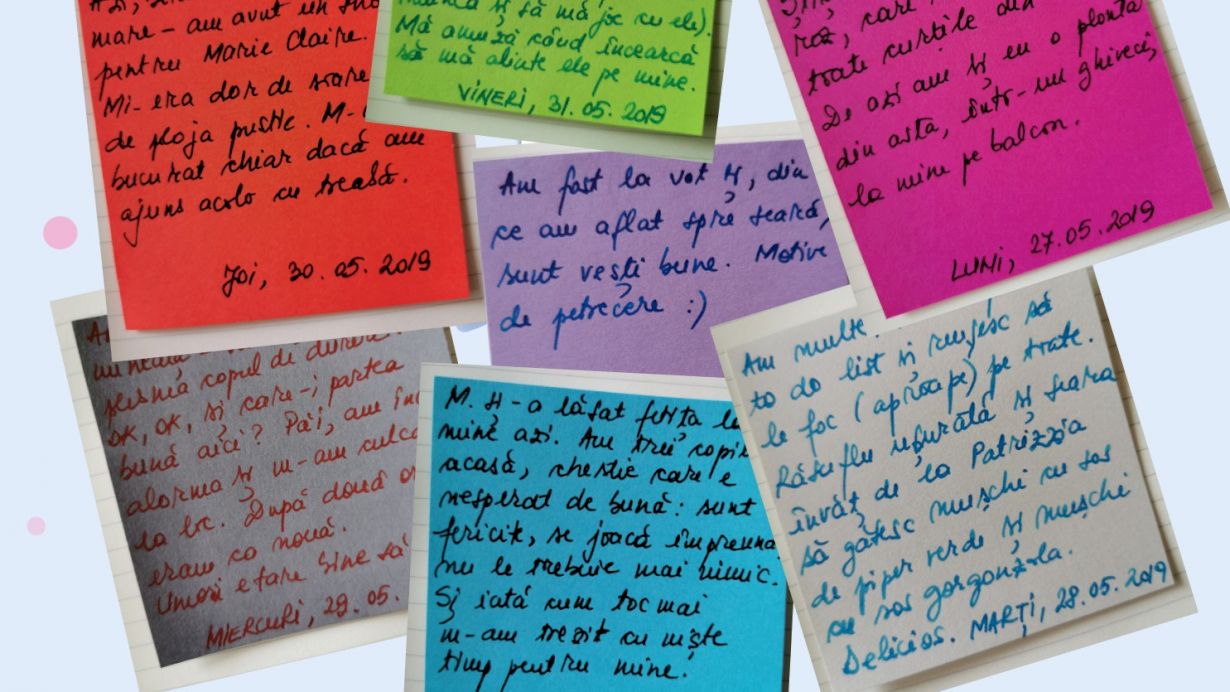 mare - am avut un
pentru Marie Claire.
Mi-era dor de mare
de plaja pustie. M-
bucurat chiar dacă am
ajuns acolo cu treabă.
Joi, 30.05.2019
și să mă joc cu ele).
Mă amuză când încearcă
să mă alinte ele pe mine.
VINERI, 31.05.2019
roz, care
toate curțile din
De azi am și eu o plantă
din asta, într-un ghiveci,
la mine pe balcon.
LUNI, 27.05.2019
Am fost la vot și, din
ce am aflat spre seară,
sunt vești bune. Motive
de petrecere :)
capul de durere
OK, OK, și care-i partea
bună aici? Păi, am
alarma și m-am
la loc. După două
eram ca nouă.
Uneori e tare bine să
MIERCURI, 29.05.
M. și-a lăsat fetița la
mine azi. Am trei copii
acasă, chestie care e
nesperat de bună: sunt
fericiți, se joacă împreună
nu le trebuie mai nimic.
Și iată cum toc mai
m-am trezit cu niște
timp pentru mine!
Am multe
to do list și reușesc să
le fac (aproape) pe toate.
Răsuflu ușurată și seara
învăț de la Patrizzia
să gătesc mușchi cu sos
de piper verde și mușchi
cu sos gorgonzola.
Delicios. MARȚI, 28.05.2019